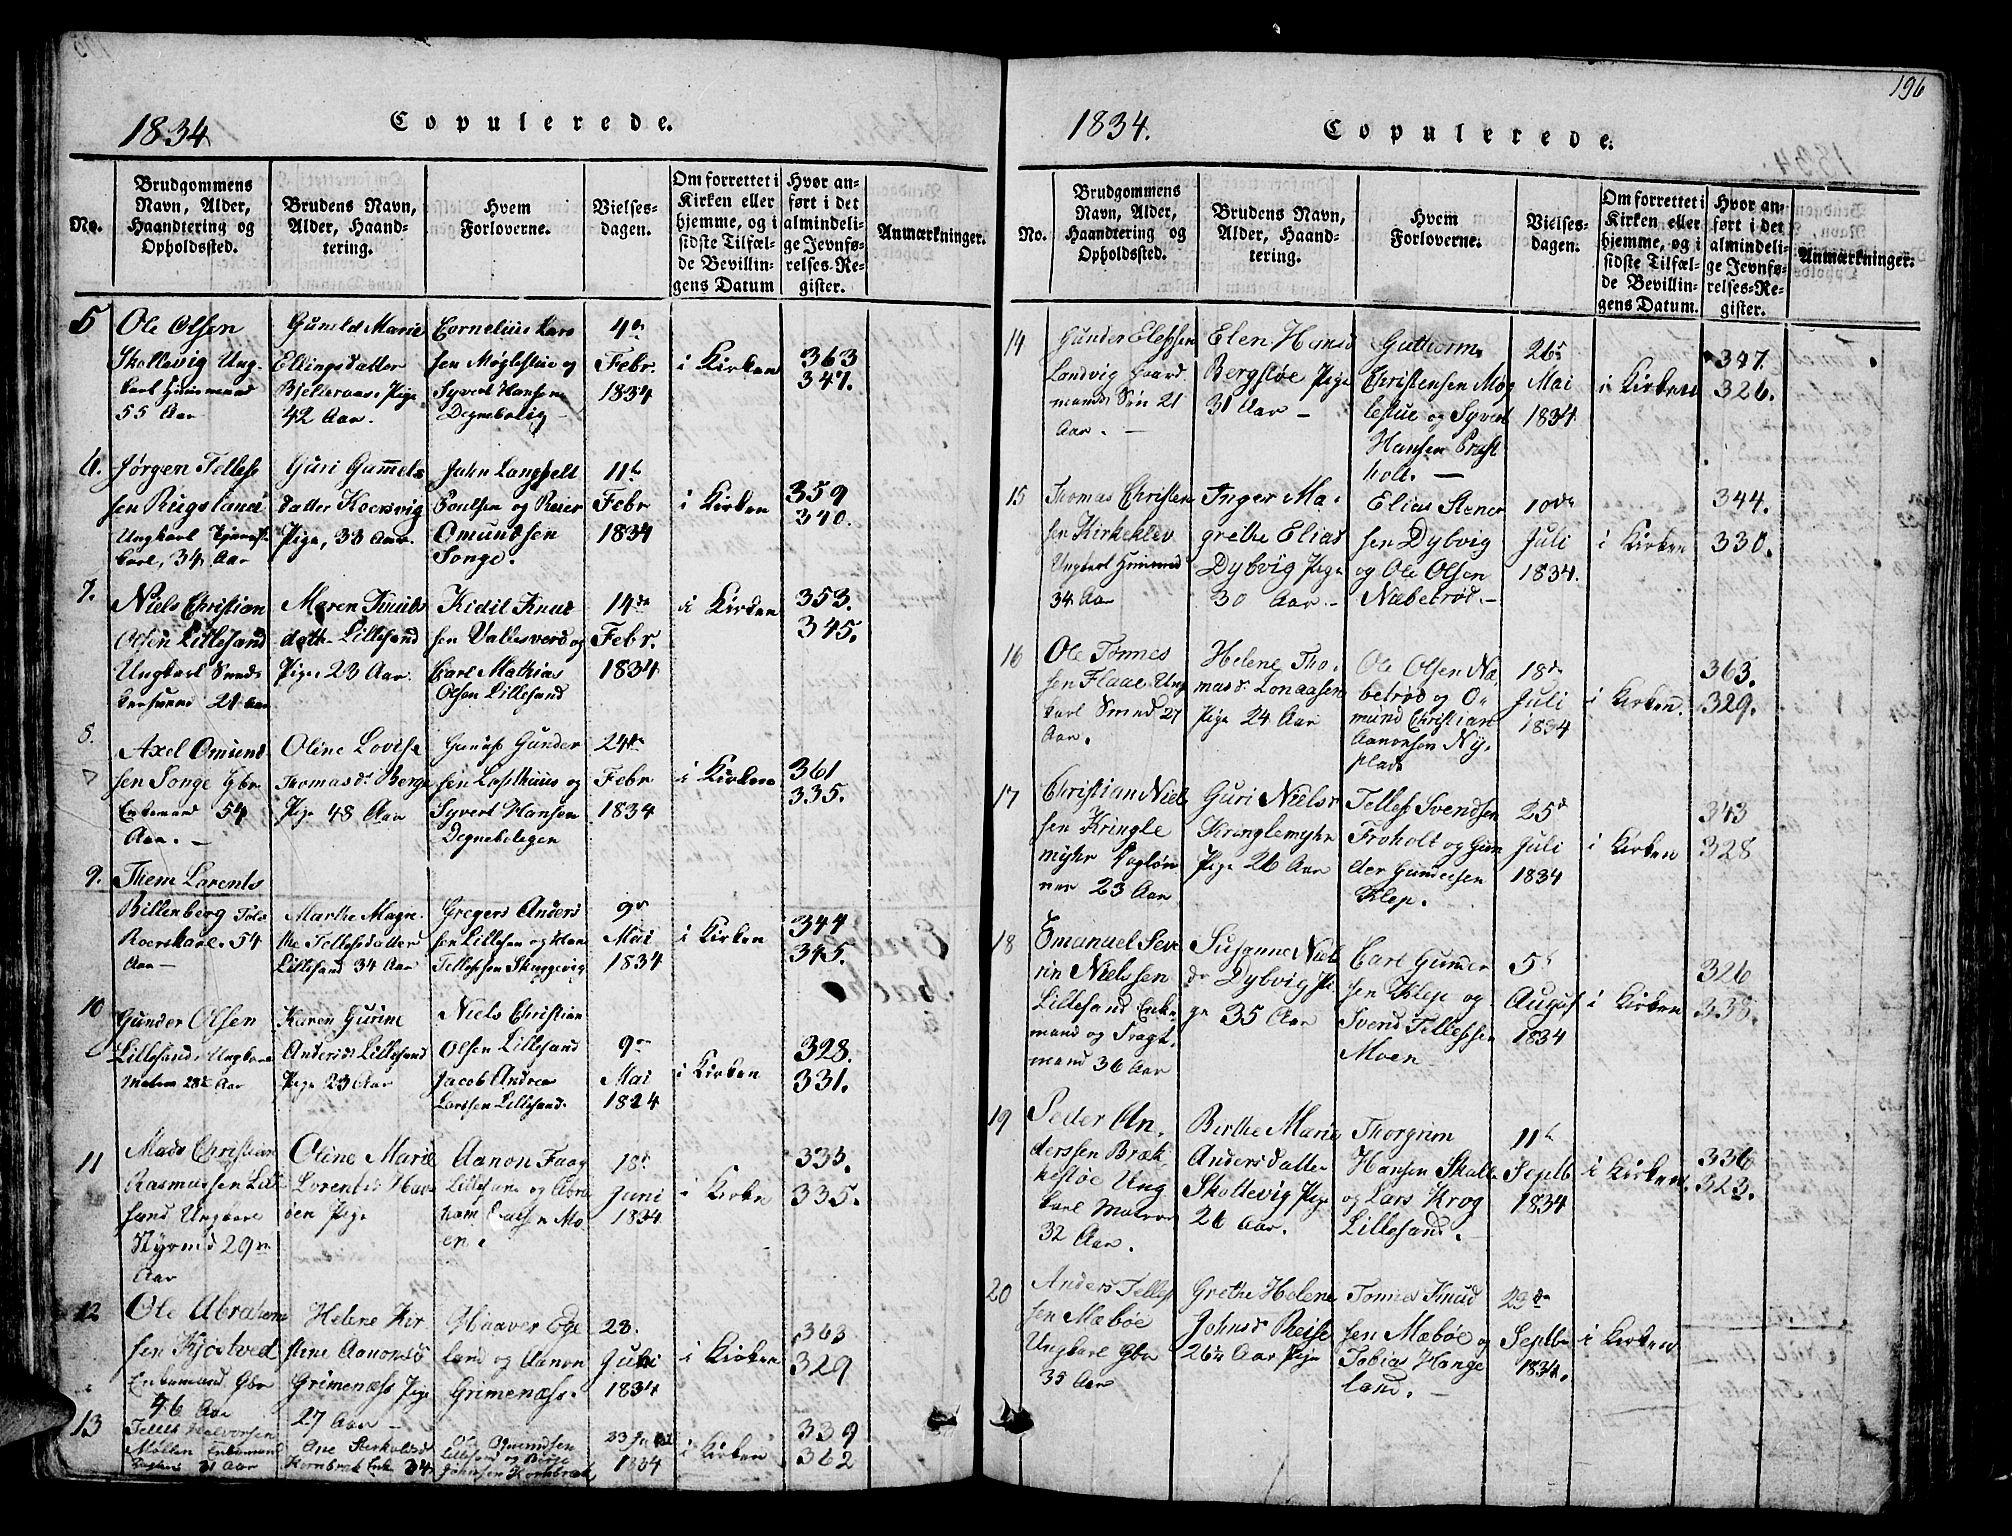 1834
Copulerede.
No.
Brudgommens
Navn, Alder,
Haandtering og
Opholdssted.
Brudens Navn,
Alder, Haand-
tering.
Hvem
Forloverne.
Vielses-
dagen.
Om forrettet i
Kirken eller
hjemme, og i
sidste Tilfæl-
de Bevillin-
gens Datum
Hvor an-
ført i det
almindeli-
ge Jevnfø-
relses-Re-
gister.
Anmærkninger.
5
Ole Olsen
Skallevig Ung-
karl
55 Aar
Gunild Marie
Ellingsdatter
Bjelleraas Pige
42 Aar.
Cornelius Lars
sen Møglestue og
Syvert Hansen
Degnebolig
4de
Febr.
1834
i Kirken
363
347.
6.
Jørgen Tellef
sen Rugsland
Ungkarl
karl, 34 Aar
Guri Gummels
datter Koersvig
Pige, 33 Aar.
John Langfelt
Poulsen og Reier
Omundsen
Songe.
11te
Febr
1834
i Kirken
359
340.
7.
Niels Christian
Olsen Lillesand
Ungkarl Smed
21 Aar
Maren Knuds
datt. Lillesand
Pige 23 Aar.
Kidil Knut
sen Vallesverd og
Carl Mathias
Olsen Lillesand
14de
Febr.
1834
i Kirken
353.
345.
8.
Axel Omund
sen Songe Gbr
Enkemand 54
Aar.
Oline Lovise
Thomasdr Berge
Pige 48 Aar
Gunder
sen Lofthuus og
Syvert Hansen
Degneboligen
24de
Febr
1834
i Kirken
361
335.
9.
Them Lorents
Billenberg
Roerskarl. 54
Aar
Marthe Magre
the Tellefsdatter
Lillesand 34 Aar
Gregers Anders
sen Lillesan og Han
Tellefsen Skuggevig
9de
Mai
1834
i Kirken
344
345.
10
Gunder Olsen
Lillesand Ungkarl
Matros 28 Aar
Karen Gurine
Andersdr Lillesand
Pige 23 Aar
Niels Christian
Olsen Lillesand
Jacob Andrea
Larssen Lillesand.
9de
Mai
1824
i Kirken
328.
331.
11
Mads Christian
Rasmussen Lille
sand Ungkarl
Styrmd 29
Aar
Oline Marie
Lorentsd Hav
den Pige
Aanon Faag
Lillesand og Abra
ham
en.
18d
Juni
1834
i Kirke
333.
335.
12
Ole Abraham
sen Kjøstved
Enkemand Gbr
46 Aar
Helene Kir
stine Aanonsd
Grimenæss Pige
27 Aar
Haaver Ege
land og Aanon
Grimenæss.
23.
Juni
1834
i Kirken
363
329
13
Tellef Halvorsen
Møllen Enkemand
31 Aar
Ane
Kornbræk Enke 34
Ole Omundsen
Lillesand og Børje
Johnsen Kornbræk
23
1834
i Kirken
339
362
196
1834.
Copulerede.
No.
Brudgommens
Navn, Alder,
Haandtering og
Opholdssted.
Brudens Navn,
Alder, Haand-
tering.
Hvem
Forloverne.
Vielses-
dagen.
Om forrettet i
Kirken eller
hjemme, og i
sidste Tilfæl-
de Bevillin-
gens Datum.
Hvor an-
ført i det
almindeli-
ge Jevnfø-
relses-Re-
gister.
Anmærkninger.
14
Gunder Elefsen
Landvig Gaard
mands Søn 21
Aar.
Elen Hansd
Bergstøe Pige
31 Aar
Guthorm
Christensen Møg
lestue og Syvert
Hansen Præst
holt.
26de
Mai
1834
i Kirken
347.
326.
15
Thomas Christen
sen Kirkeklev
Ungkarl
34 Aar
Inger Ma-
grethe Elias
Dybvig Pige
30 Aar.
Elias Stener
sen Dybvig
og Ole Olsen
Næbetrød.
10de
Juli
1834.
i Kirken
344.
330.
16
Ole Tønnes
sen Flaae Ung
karl Smed 27
Aar.
Helene Tho-
masdr Lonaasen
Pige 24 Aar
Ole Olsen Næ-
betrød og O-
mund Christian
Aanonsen Ny-
plads
18de
Juli
1834
i Kirken
363.
329.
17
Christian Niel
sen Kringle
myhr Dagløn
ner 23 Aar
Guri Nielsdr
Kringlemyhr
Pige 26 Aar
Tellef Svendsen
Froholt og Gun
der Gundersen
Klep.
25d
Juli
1834
i Kirken
343
328
18
Emanuel Sev
rin Nielssen
Lillesand Enke
mand og Fragt
mand 36 Aar
Susanne Niels
dr Dybvig Pi
ge 35 Aar
Carl Gunder
sen Klep og
Svend Tellefsen
Moen
5te
August
1834
i Kirken
326
338.
19
Peder An-
derssen Bræk
kestøe Ung
karl Matros
32 Aar.
Berthe Marie
Andersdatter
Skallevig Pige
26 Aar.
Thorgrim
Hansen Skalle
og Lars Krog
Lillesand.
11te
Septb
1834
i Kirken.
336
323.
20
Anders Tellef
sen Mæbøe
Ungkarl Gbr
35 Aar
Grethe Helene
Johnsd Reise
26½ Aar Pige
Tønnes Knud
sen Mæbøe og
Tobias Hange
land.
29de
Septbr
1834.
i Kirken